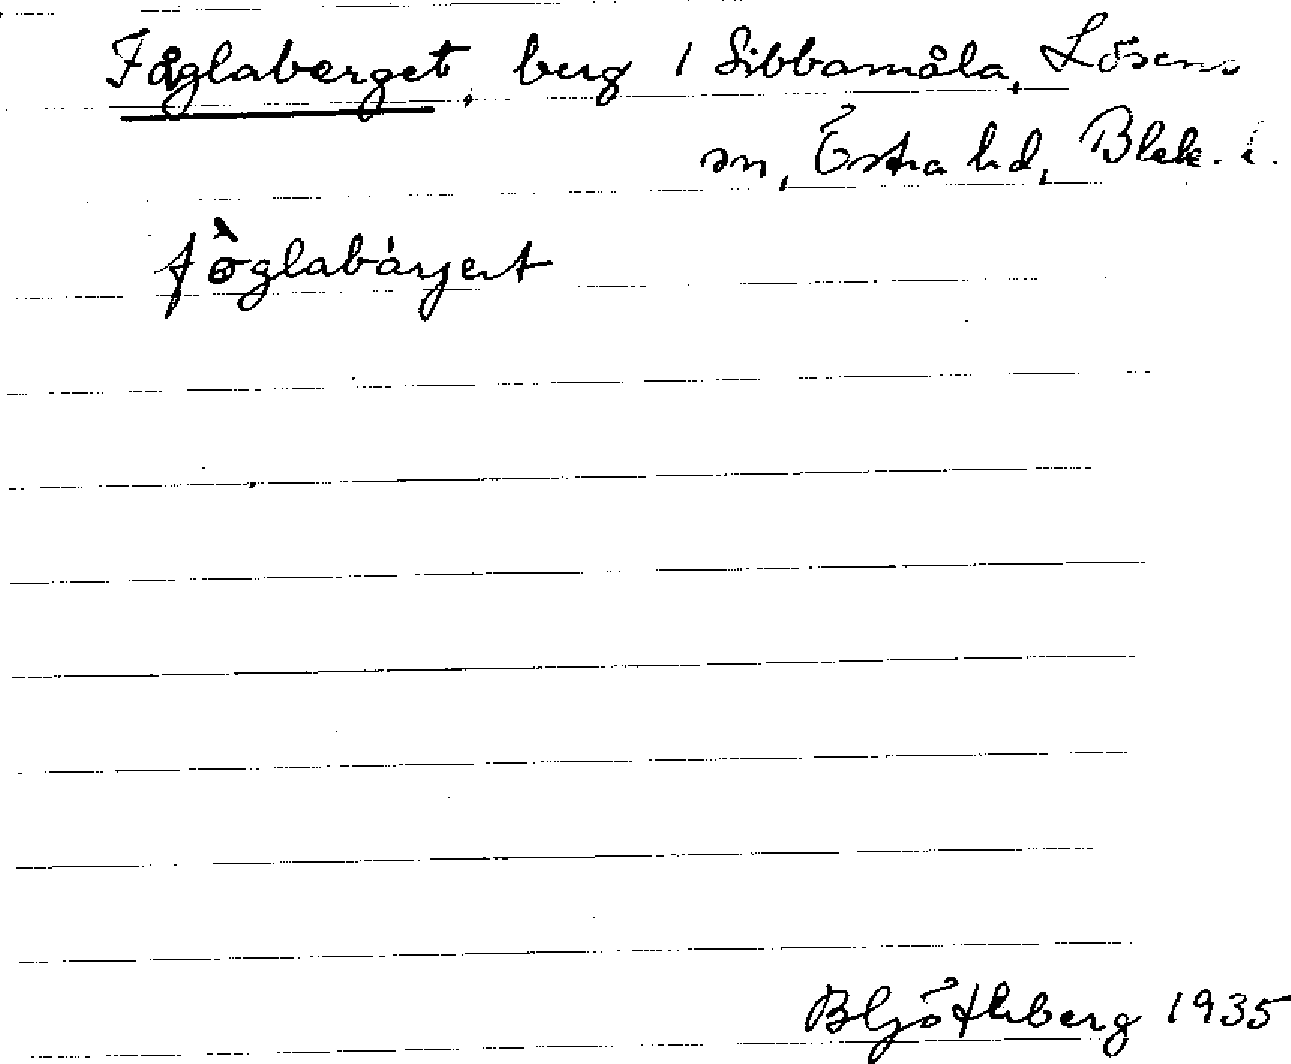 Fåglaberget, berg i Sibbamåla, Lösens
sn, Östra hd, Blek. l.
fòglabárjet
Bl Götlberg 1935